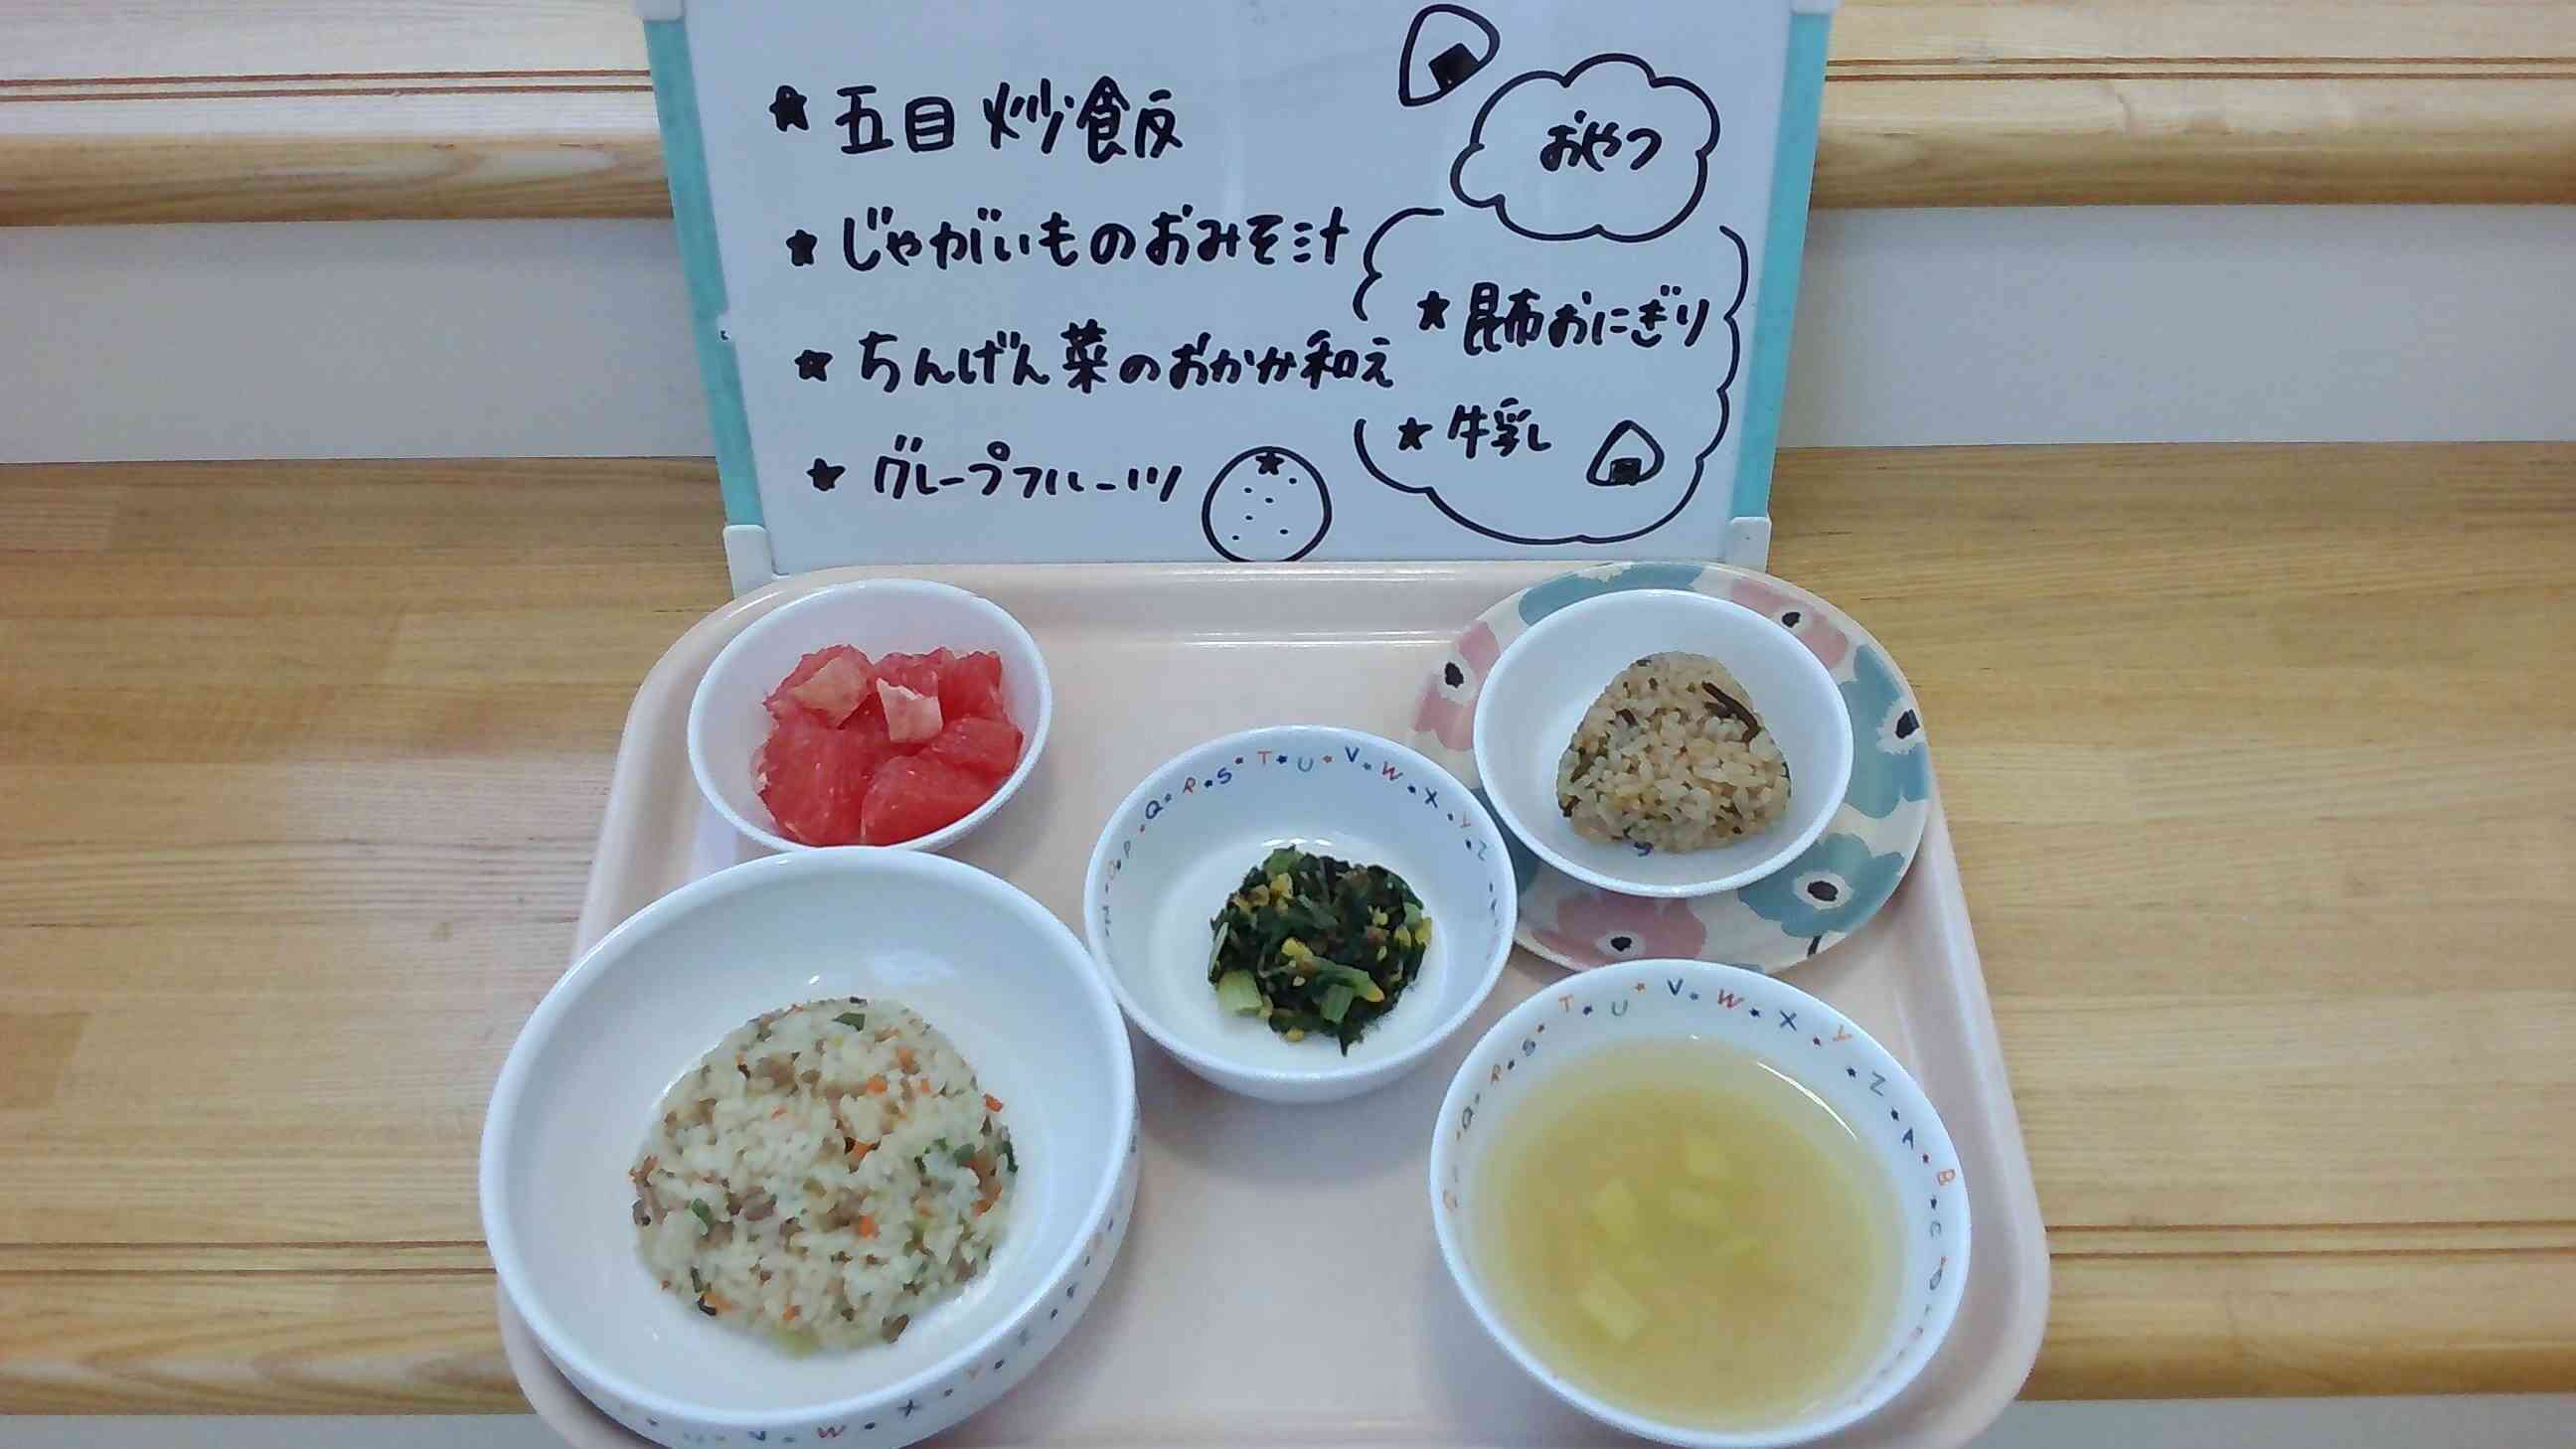 ★ 五目炒飯
★ じゃがいものおみそ汁
★ ちんげん菜のおかか和え
★ グレープフルーツ
おやつ
★ 昆布おにぎり
★ 牛乳
P Q R S T U V W X Y Z
Q R S T U V W X Y Z A B C D
V W X Y Z